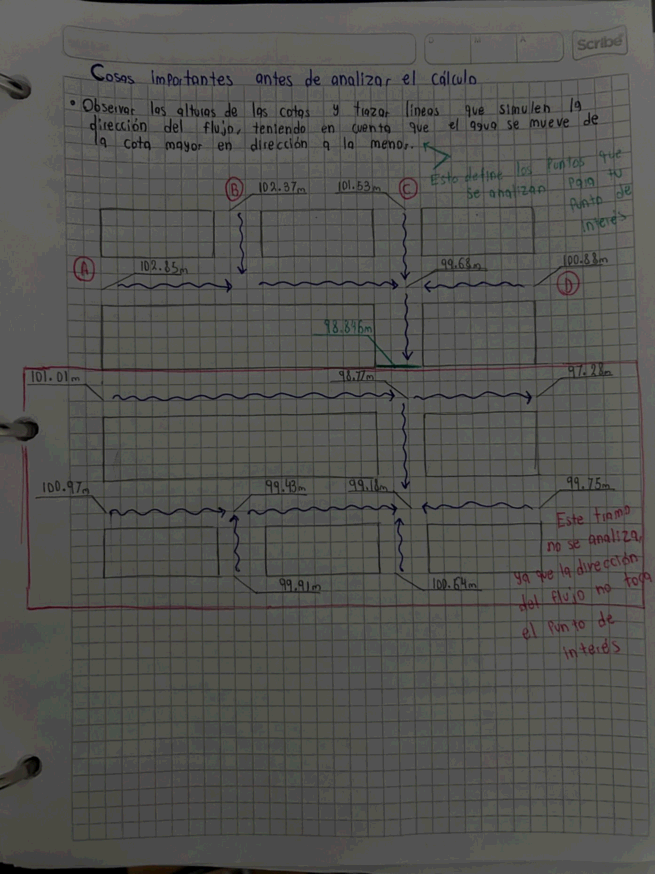 Scribe
Cosas importantes antes de analizar el cálculo
• Observar las alturas de las cotas y trazar líneas que simulen la
dirección del flujo, teniendo en cuenta que el agua se mueve de
la cota mayor en dirección a la menor.
Esto define los Puntos que
se analizan para tu
Punto de
interés
B 102.37m 101.53m C
A 102.85m 99.68m 100.88m
D
98.846m
101.01m 98.77m 97.28m
100.97m 99.43m 99.18m 99.75m
99.91m 100.64m
Este tramo
no se analiza,
ya que la dirección
del flujo no toca
el Punto de
interés